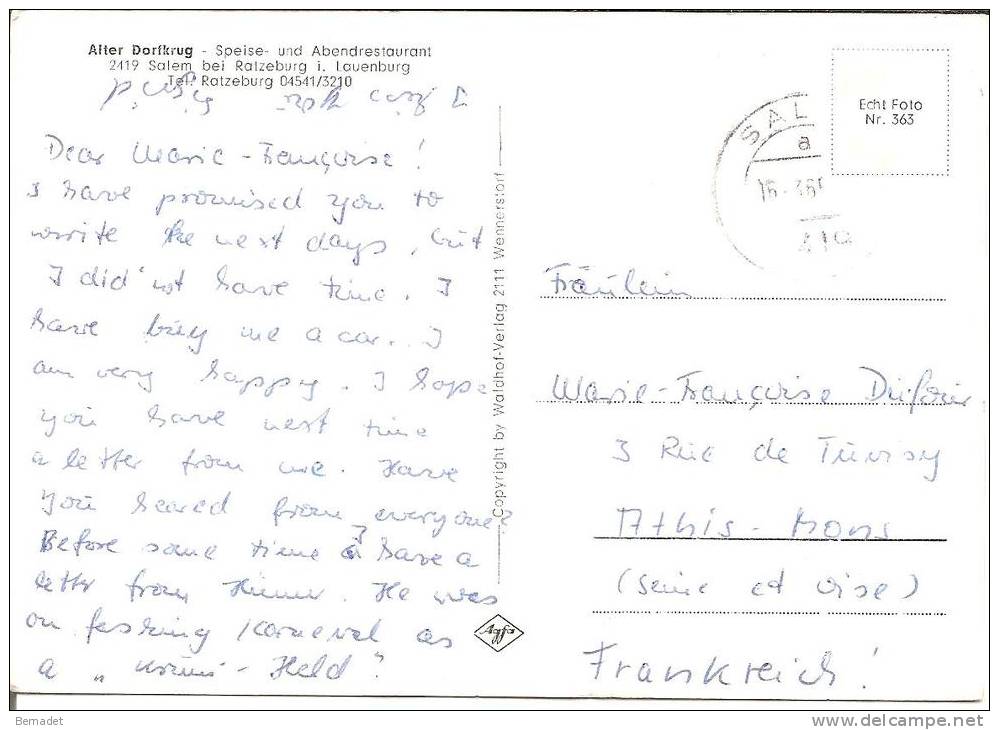 Alter Dorfkrug - Speise- und Abendrestaurant
2419 Salem bei Ratzeburg i. Lauenburg
Tel. Ratzeburg 04541/3210
Dear Marie-Françoise!
I have promised you to
write the next days, but
I did'nt have time. I
have buy me a car. I
am very happy. I hope
you have next time
a letter from me. Have
you heared from everyone?
Before some time I have a
letter from. He was
on fasking / Karneval as
a „Krimi-Held".
Copyright by Waldhof-Verlag 2111 Wennerstorf
Agfa
Echt Foto
Nr. 363
SAL
a
16.-3.6
419
Fräulein
Marie-Françoise
3 Rue de
Athis-Mons
(Seine et Oise)
Frankreich!
Bernadet
www.delcampe.net